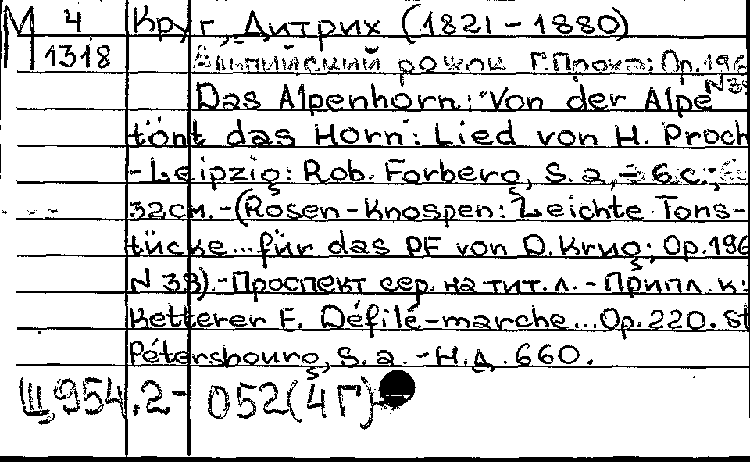 М 4 Круг, Дитрих (1821-1880)
1318 Альпийский рожок Г.Прока; Op.196
N 38
Das Alpenhorn: "Von der Alpe
tönt das Horn": Lied von H. Proch
-Leipzig: Rob. Forberg, S. a. - 6 с.;
32см.-(Rosen-Knospen: Leichte Tons-
tücke... für das PF von D. Krug; Op.196
N 38).-Проспект сер. на тит. л. - Припл. к:
Ketterer E. Défilé-marche... Op. 220. St
Pétersbourg, S. a. - Н.д. 660.
Щ954.2-052(4Г)-